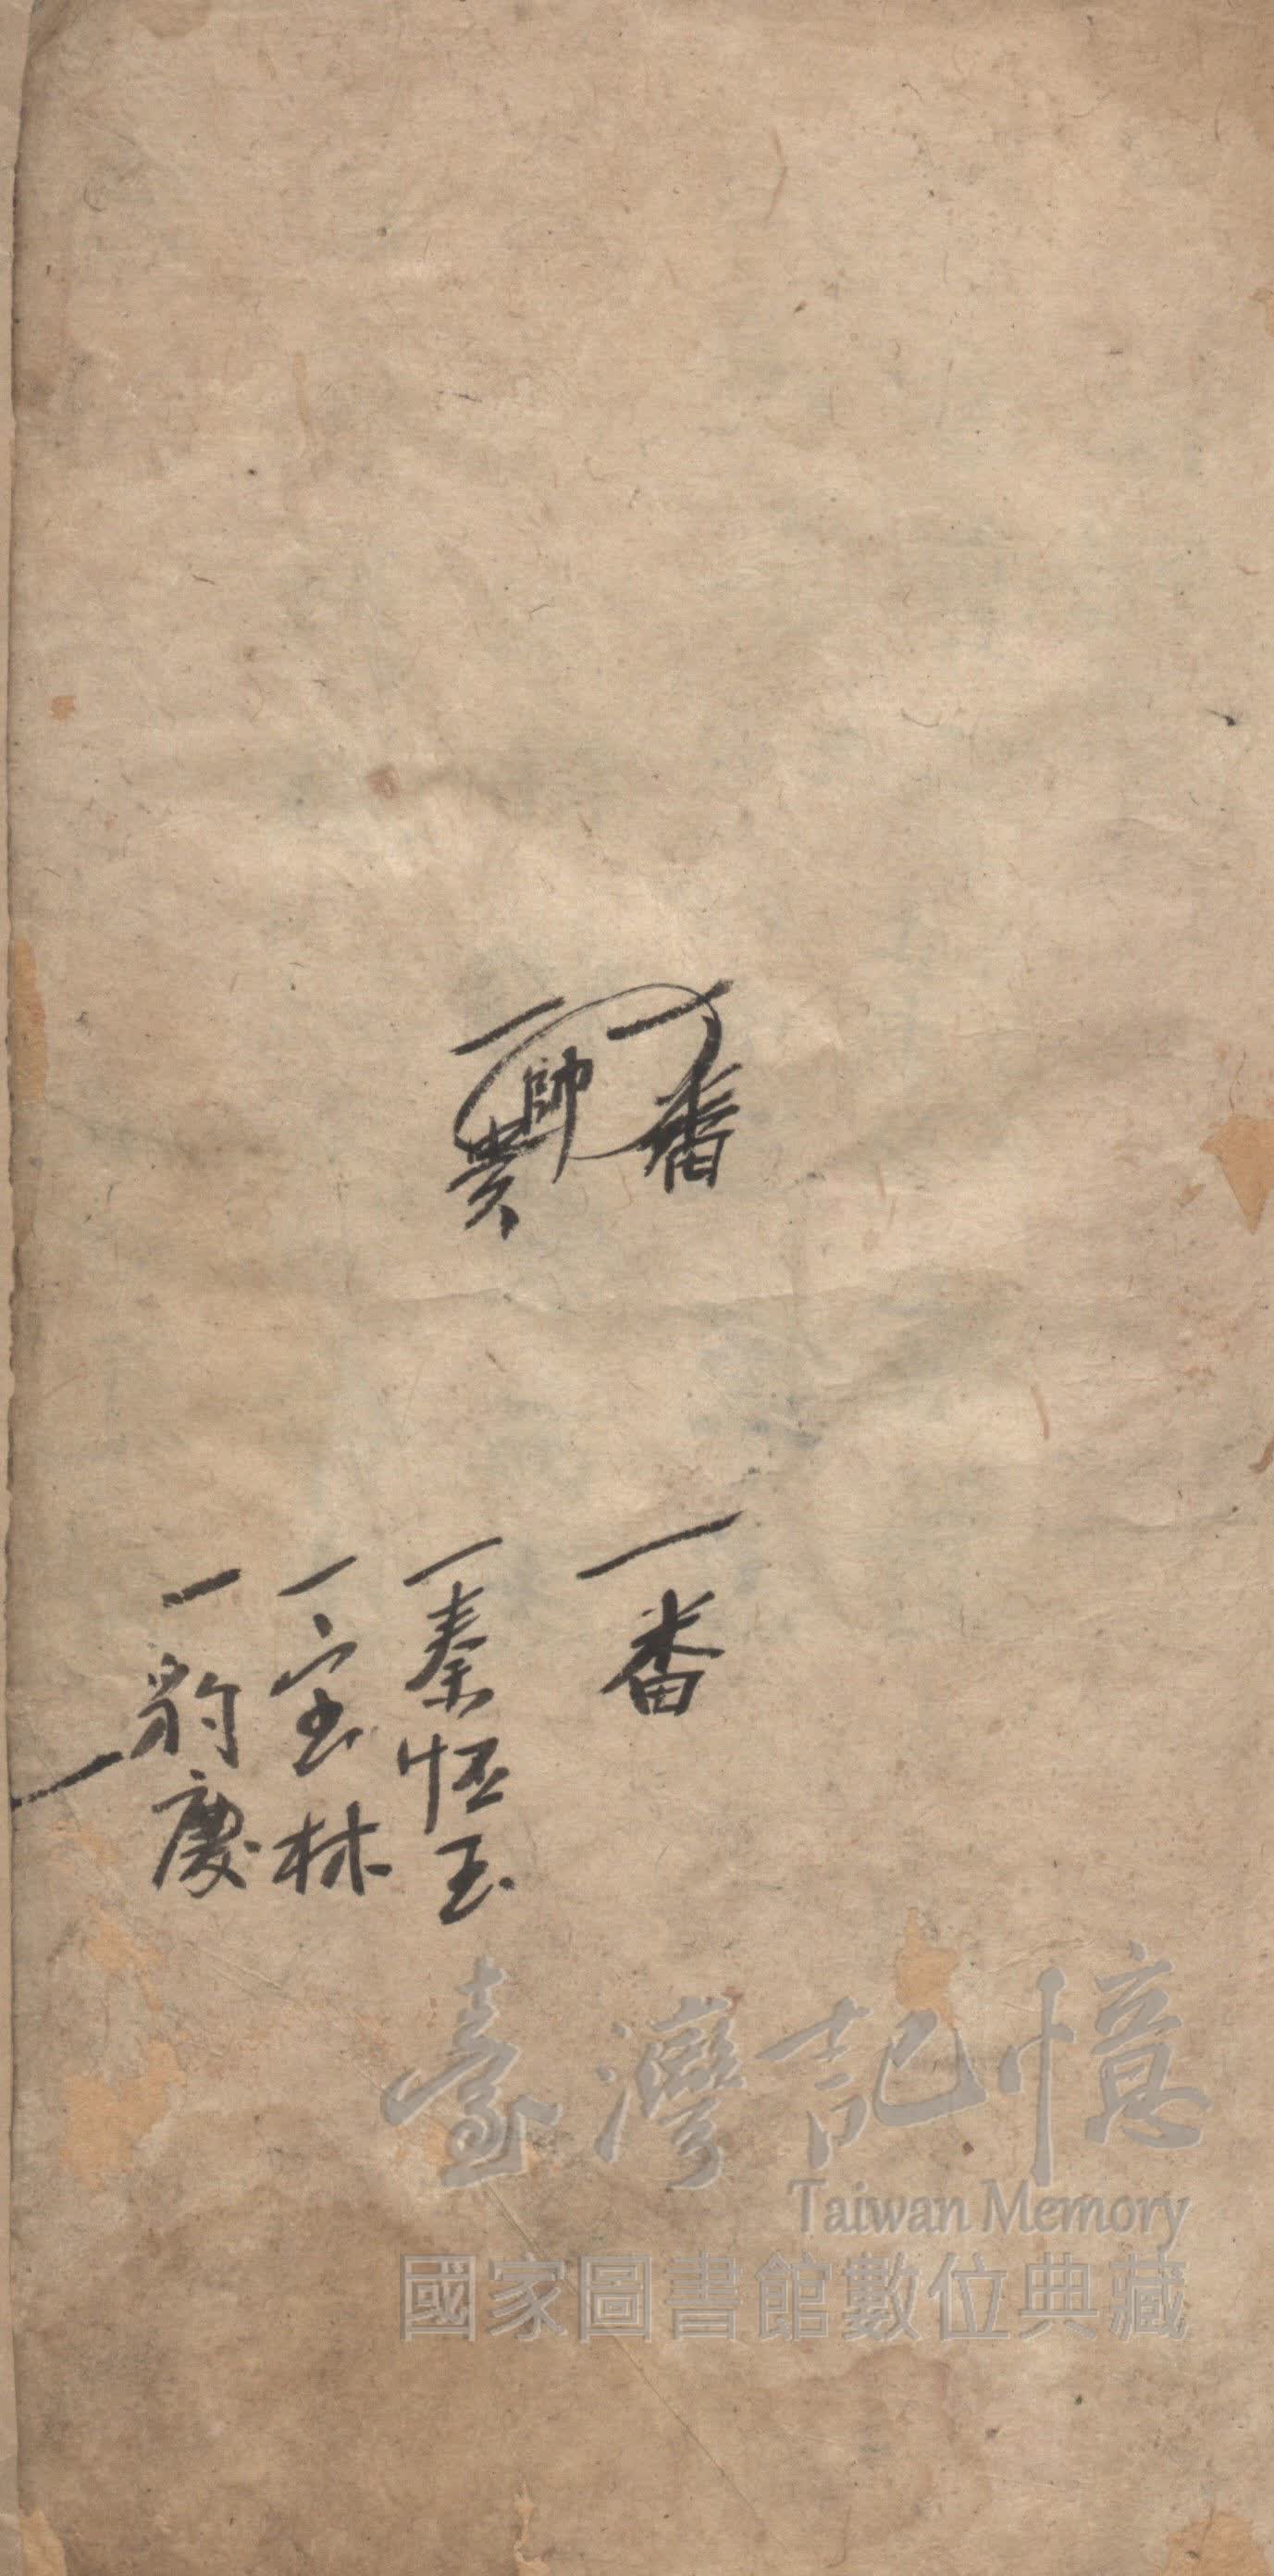 一番
帥
一貴
一番
一秦恒玉
一宝林
一豹慶
臺灣記憶
Taiwan Memory
國家圖書館數位典藏